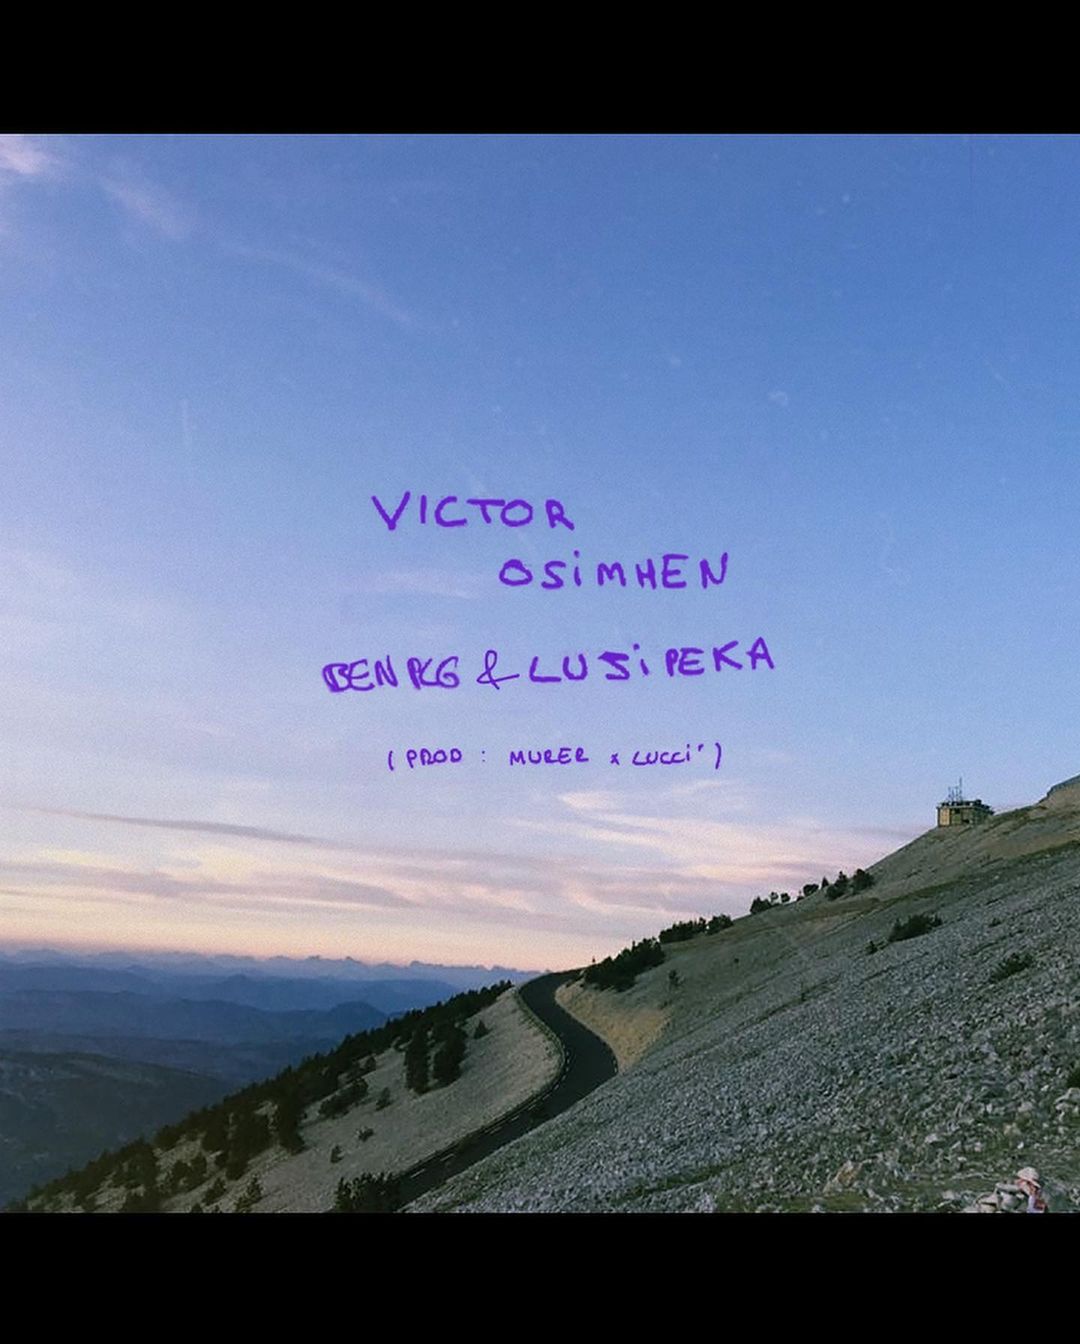 VICTOR
OSiMHEN
BEN PLG & LUSiPEKA
(PROD : MURER x LUCCi')